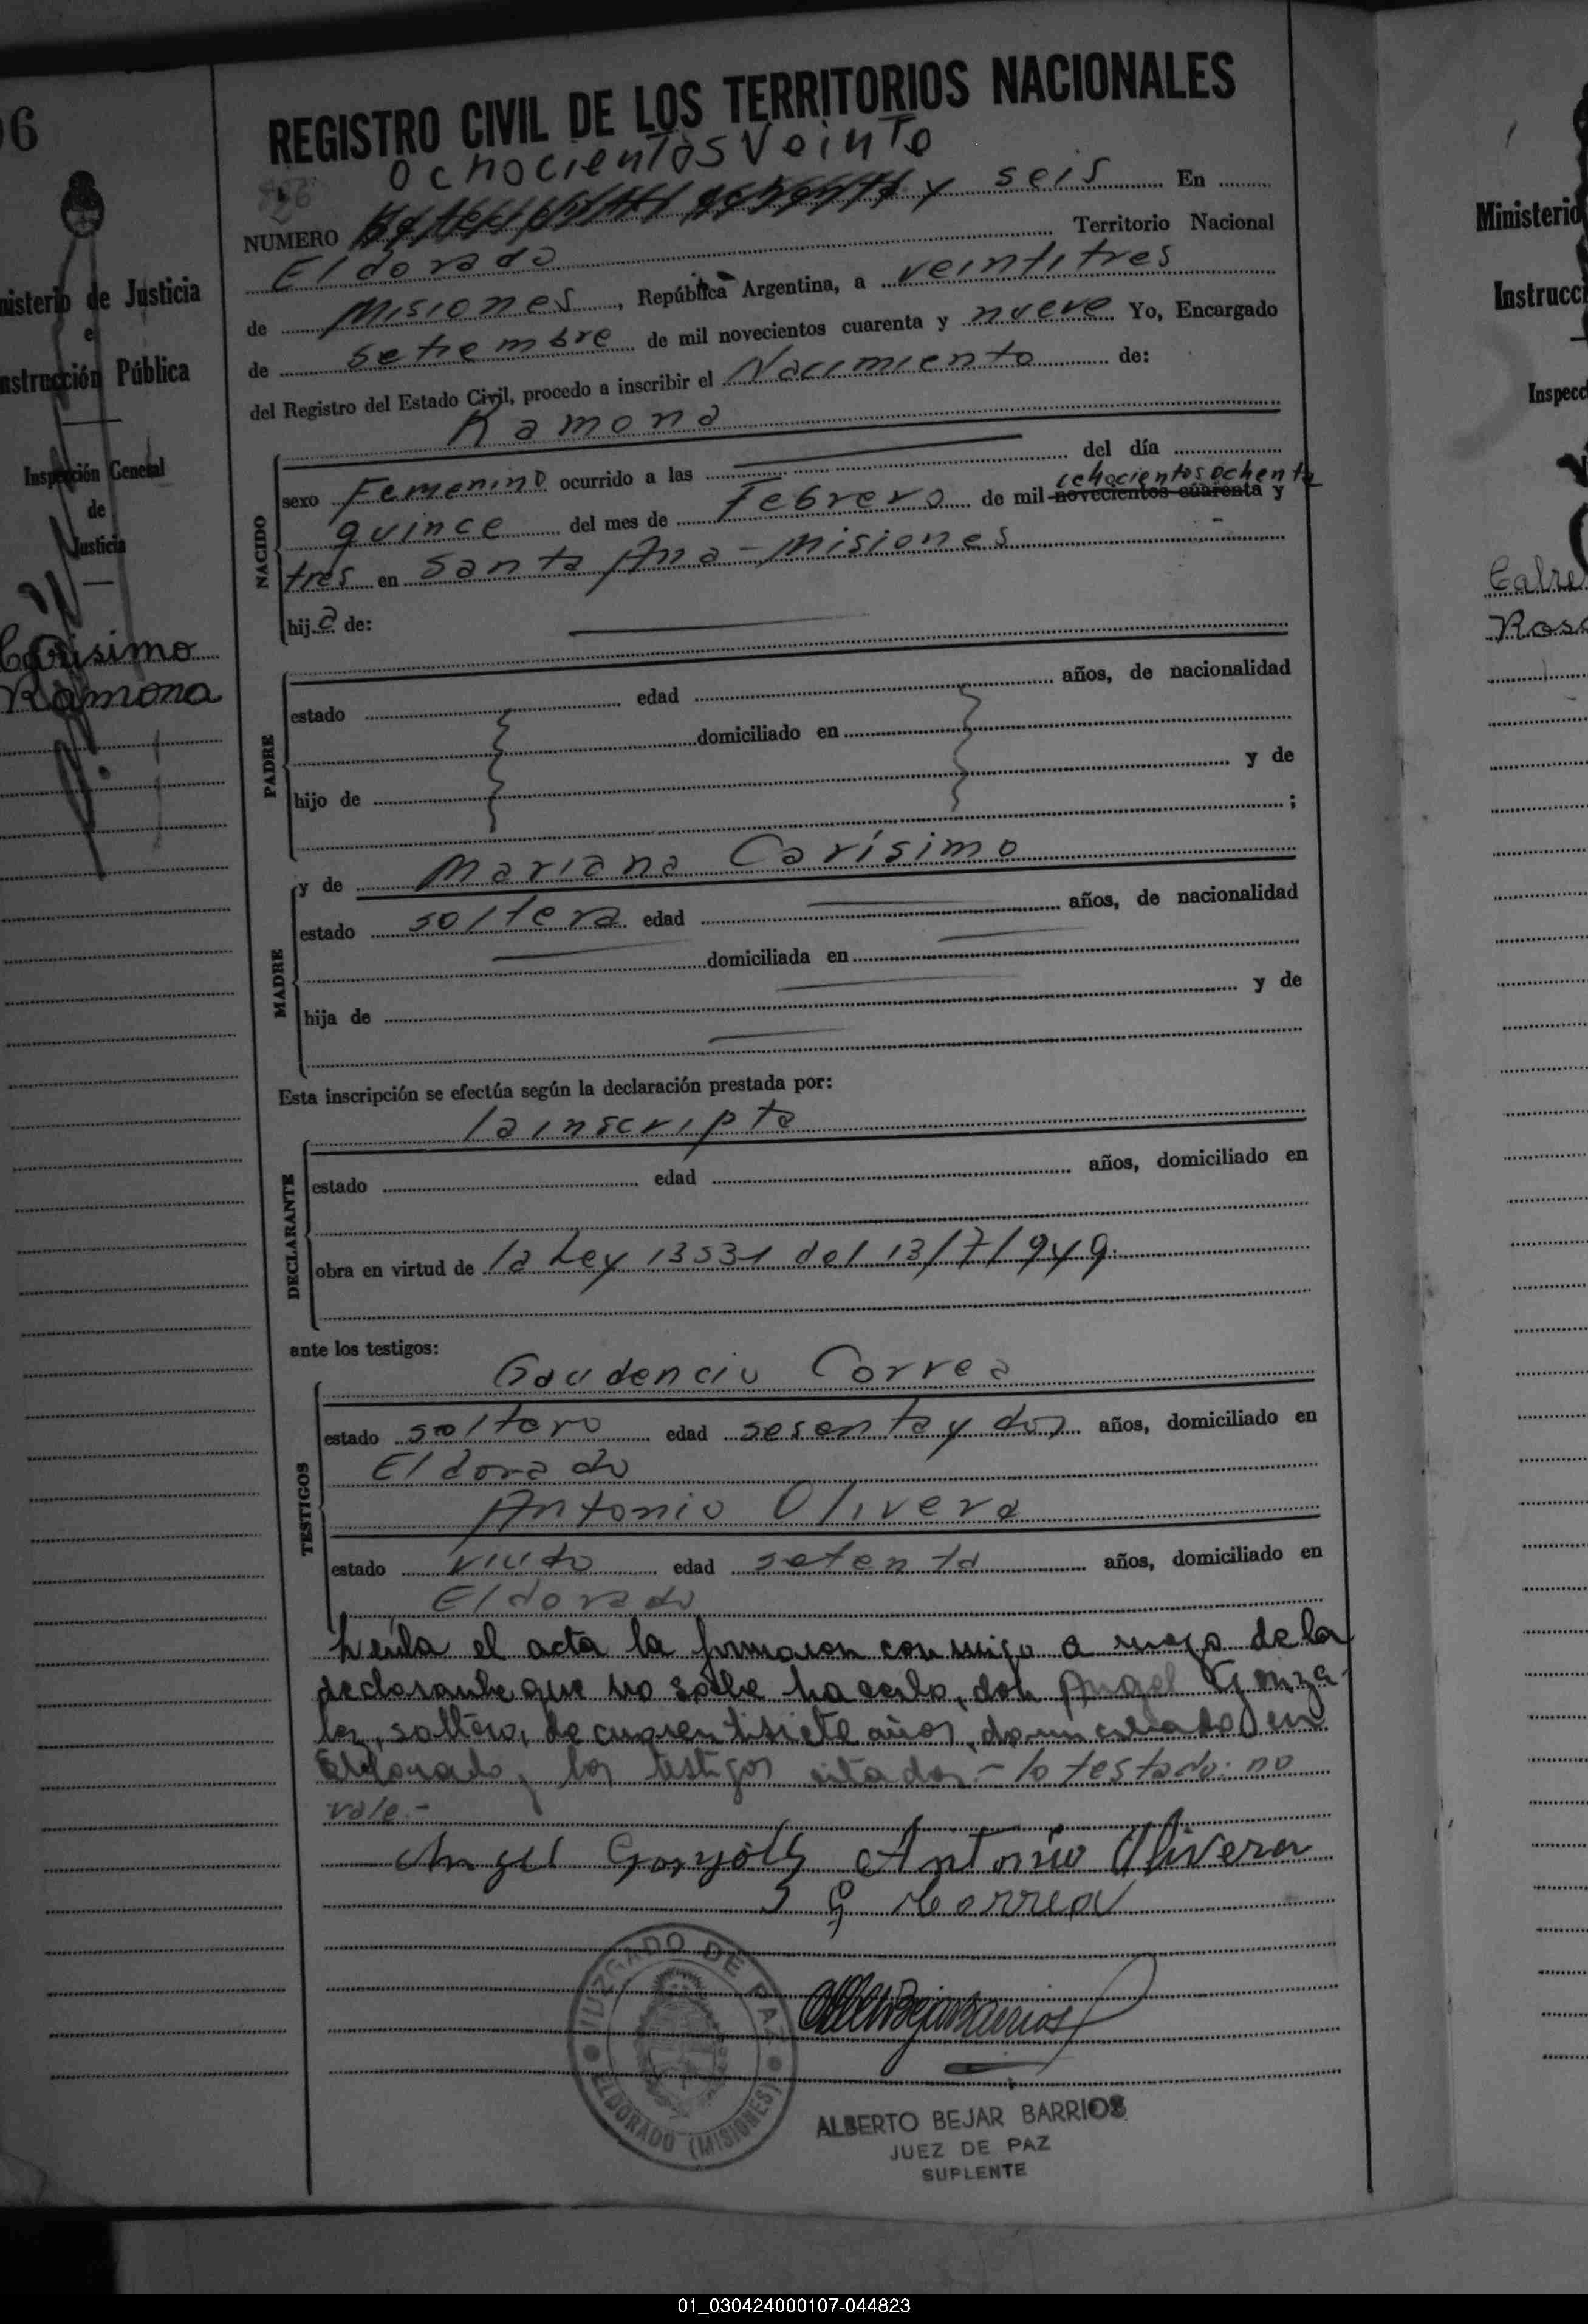 96
nisterio de Justicia
e
nstrucción Pública
Inspección General
de
Justicia
Carísimo
Ramona
REGISTRO CIVIL DE LOS TERRITORIOS NACIONALES
Ochocientos Veinte
826
NUMERO y seis En
Eldorado Territorio Nacional
de Misiones, República Argentina, a veintitres
de Setiembre de mil novecientos cuarenta y nueve Yo, Encargado
del Registro del Estado Civil, procedo a inscribir el Nacimiento de:
Ramona
NACIDO
sexo Femenino ocurrido a las del día
ochocientos ochenta
quince del mes de Febrero de mil novecientos cuarenta y
tres en Santa Ana - Misiones
hija de:
PADRE
estado edad años, de nacionalidad
domiciliado en
hijo de y de
;
MADRE
y de Mariana Carísimo
estado soltera edad años, de nacionalidad
domiciliada en
hija de y de
Esta inscripción se efectúa según la declaración prestada por:
la inscripta
DECLARANTE
estado edad años, domiciliado en
obra en virtud de la Ley 13531 del 13/7/949.
ante los testigos:
TESTIGOS
Gaudencio Correa
estado soltero edad sesenta y dos años, domiciliado en
Eldorado
Antonio Olivera
estado viudo edad setenta años, domiciliado en
Eldorado
Leída el acta la firmaron conmigo a ruego de la
declarante que no sabe hacerlo, don Angel Gonza-
lez, soltero, de cuarentisiete años, domiciliado en
Eldorado y los testigos citados.- lo testado: no
vale.-
Angel Gonzalez Antonio Olivera
G Correa
JUZGADO DE PAZ
ELDORADO (MISIONES)
ALBERTO BEJAR BARRIOS
JUEZ DE PAZ
SUPLENTE
Ministerio
Instrucci
Inspecc
Cabre
Rosa
01_030424000107-044823